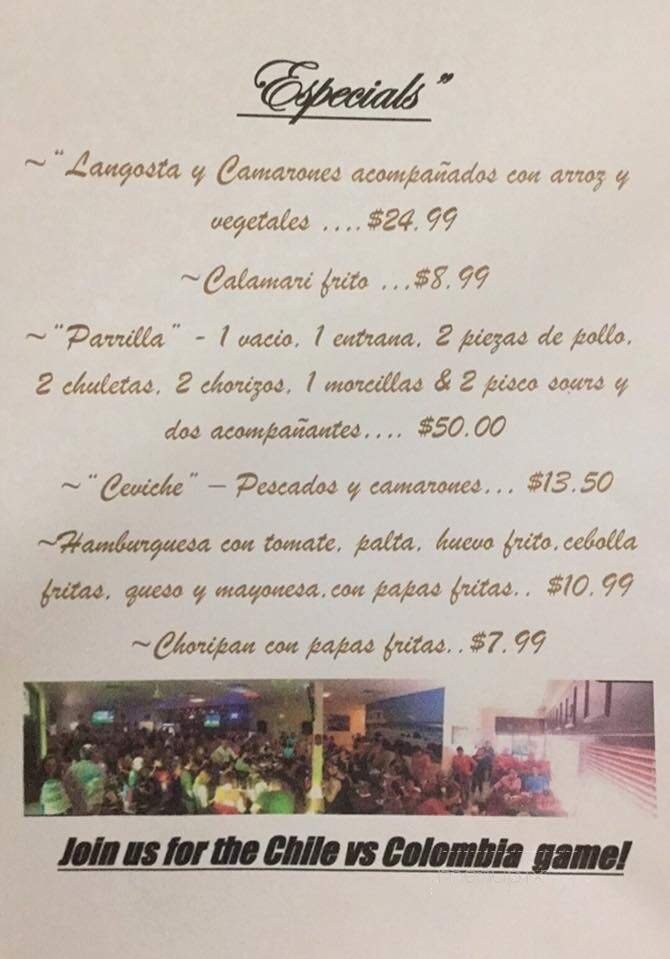 "Especials"
~"Langosta y Camarones acompañados con arroz y
vegetales ....$24.99
~Calamari frito ...$8.99
~"Parrilla" - 1 vacio, 1 entrana, 2 piezas de pollo,
2 chuletas, 2 chorizos, 1 morcillas & 2 pisco sours y
dos acompañantes.... $50.00
~"Ceviche" – Pescados y camarones... $13.50
~Hamburguesa con tomate, palta, huevo frito,cebolla
fritas, queso y mayonesa,con papas fritas.. $10.99
~Choripan con papas fritas..$7.99
Join us for the Chile vs Colombia game!